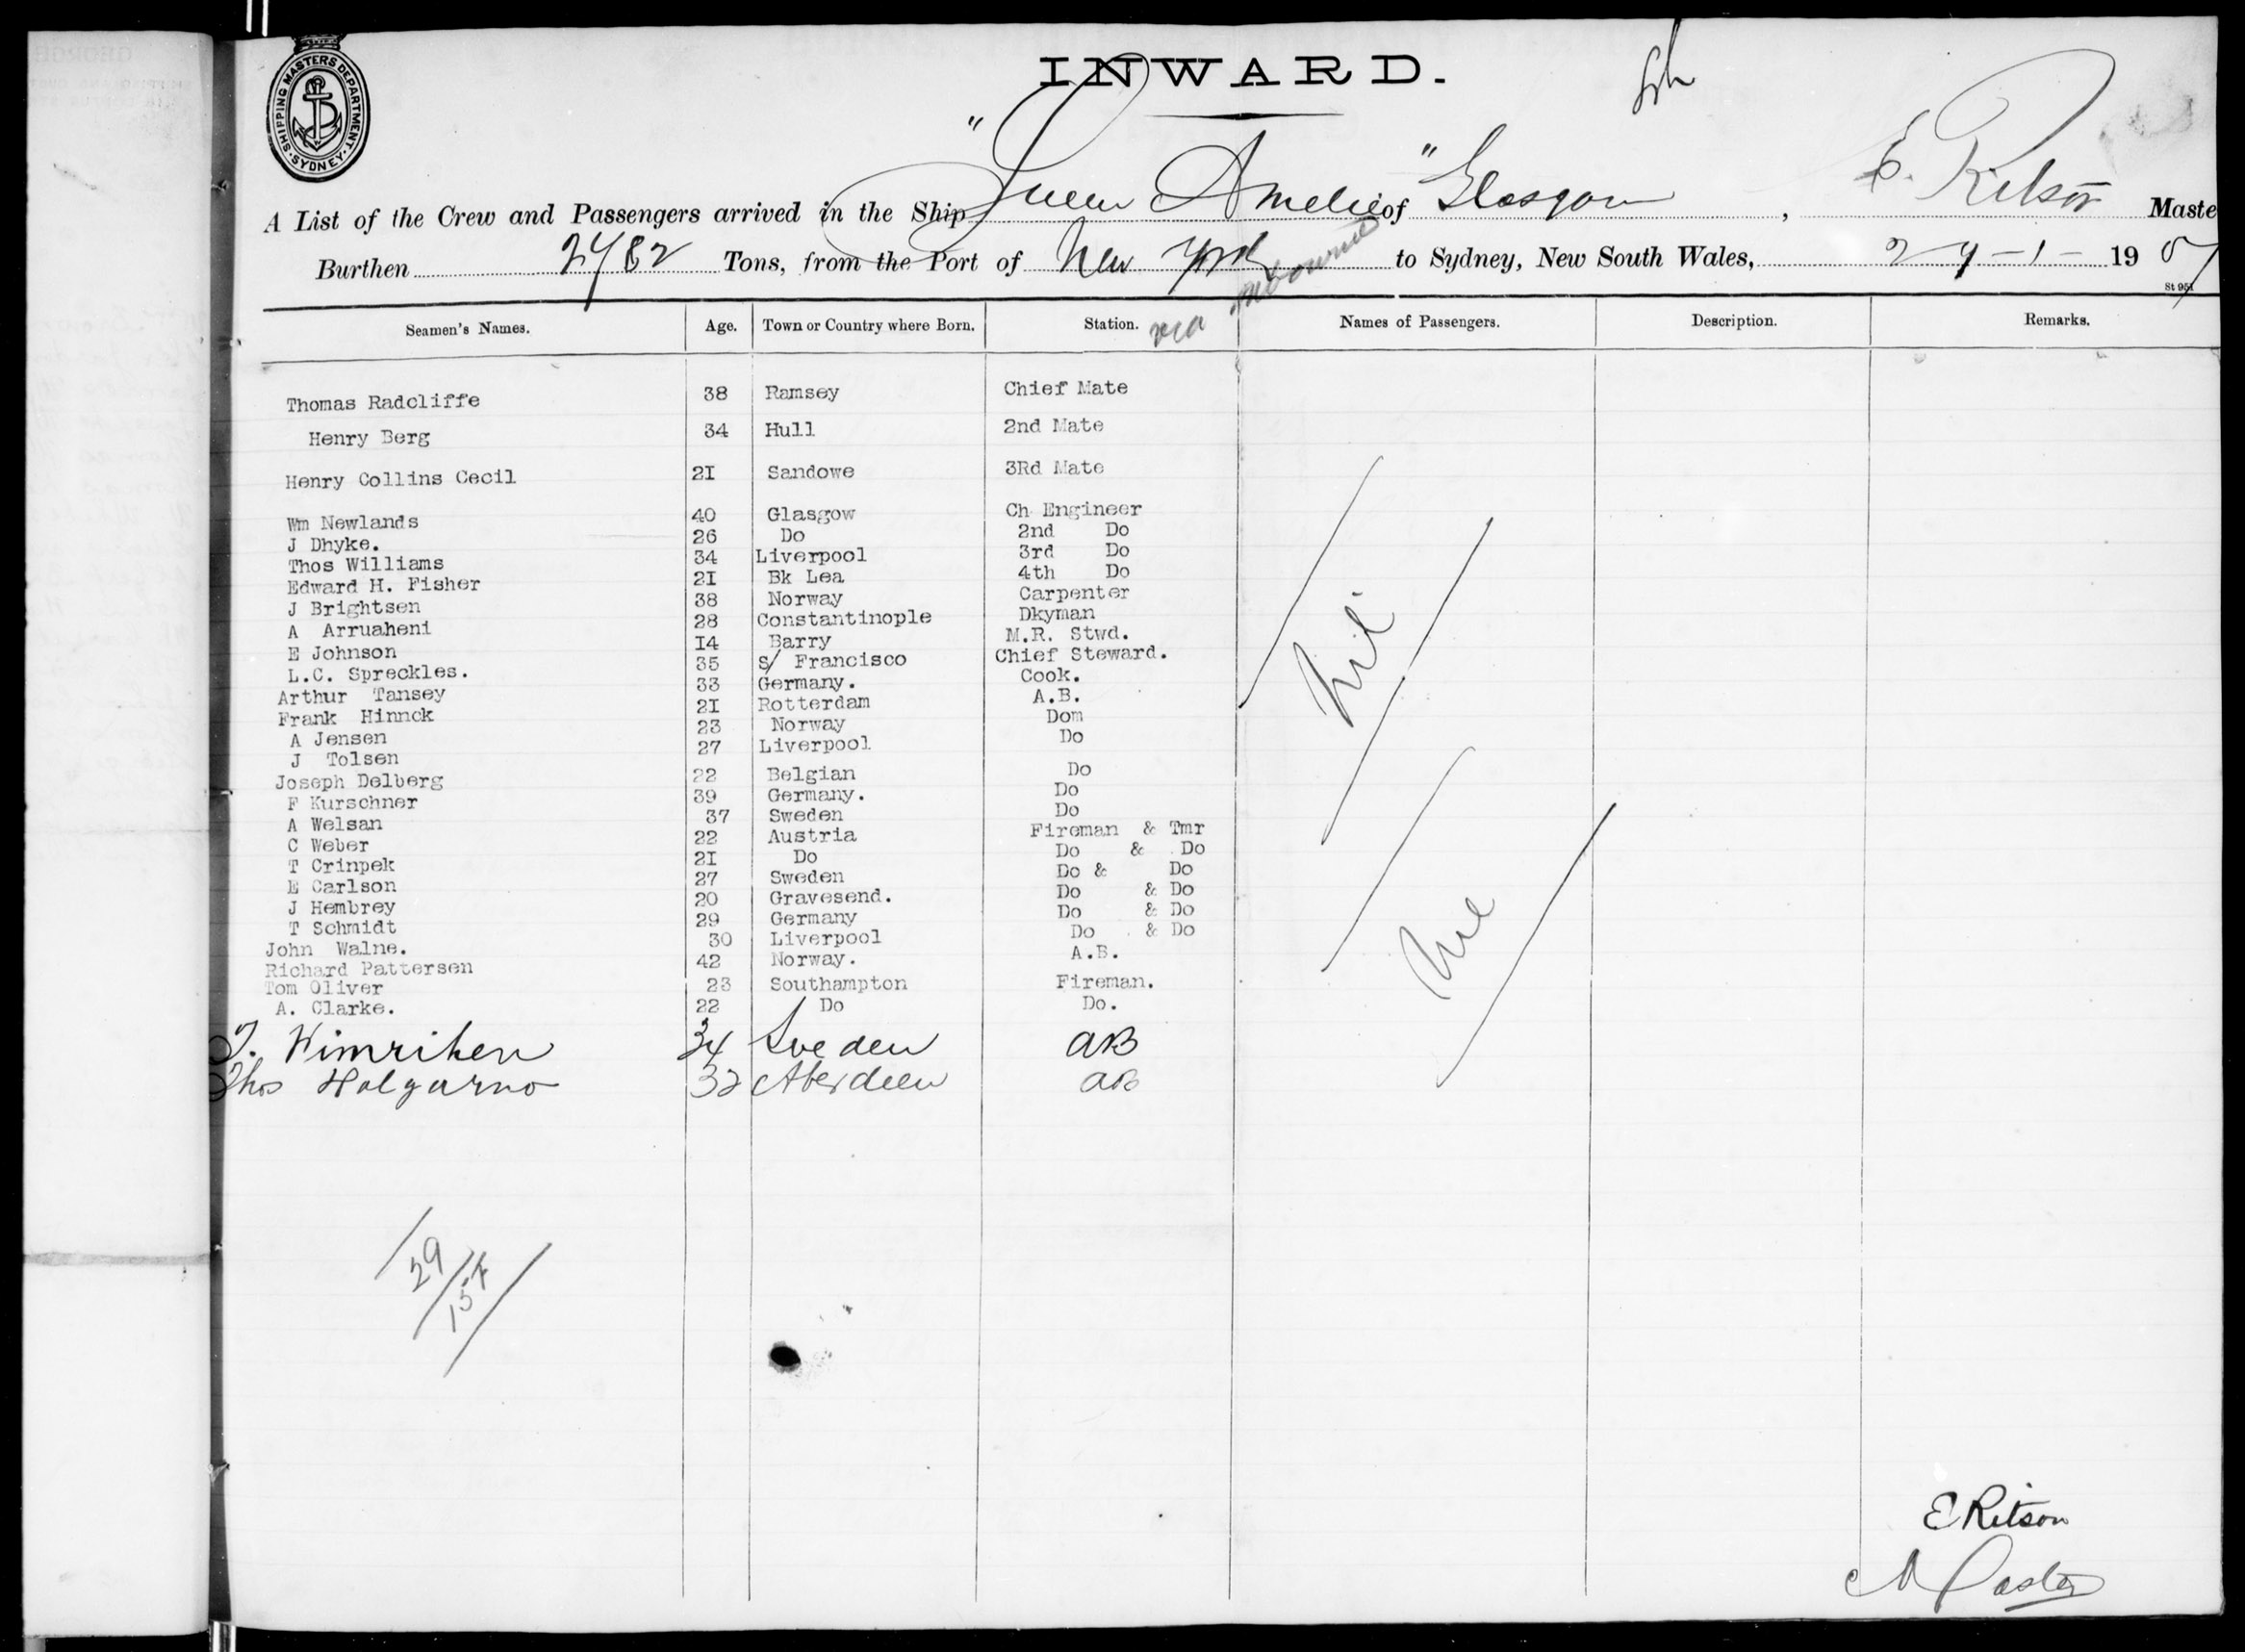 INWARD.
SHIPPING MASTERS DEPARTMENT. SYDNEY.
A List of the Crew and Passengers arrived in the Ship "Queen Amelie" of Glasgow, E. Ritson Maste
Burthen 2482 Tons, from the Port of New York to Sydney, New South Wales, 24-1-1907
via Melbourne
St 951
Seamen's Names. Age. Town or Country where Born. Station. Names of Passengers. Description. Remarks.
Thomas Radcliffe 38 Ramsey Chief Mate
Henry Berg 34 Hull 2nd Mate
Henry Collins Cecil 2I Sandowe 3Rd Mate
Wm Newlands 40 Glasgow Ch Engineer
J Dhyke. 26 Do 2nd Do
Thos Williams 34 Liverpool 3rd Do
Edward H. Fisher 2I Bk Lea 4th Do
J Brightsen 38 Norway Carpenter
A Arruaheni 28 Constantinople Dkyman
E Johnson I4 Barry M.R. Stwd.
L.C. Spreckles. 35 S/ Francisco Chief Steward.
Arthur Tansey 33 Germany. Cook.
Frank Hinnck 2I Rotterdam A.B.
A Jensen 23 Norway Dom
J Tolsen 27 Liverpool Do
Joseph Delberg 22 Belgian Do
F Kurschner 39 Germany. Do
A Welsan 37 Sweden Do
C Weber 22 Austria Fireman & Tmr
T Crinpek 2I Do Do & Do
E Carlson 27 Sweden Do & Do
J Hembrey 20 Gravesend. Do & Do
T Schmidt 29 Germany Do & Do
John Walne. 30 Liverpool Do & Do
Richard Pattersen 42 Norway. A.B.
Tom Oliver 23 Southampton Fireman.
A. Clarke. 22 Do Do.
T. Himriken 34 Sweden AB
Thos Halgarno 32 Aberdeen AB
Nil
Nil
29
15F
E Ritson
Master